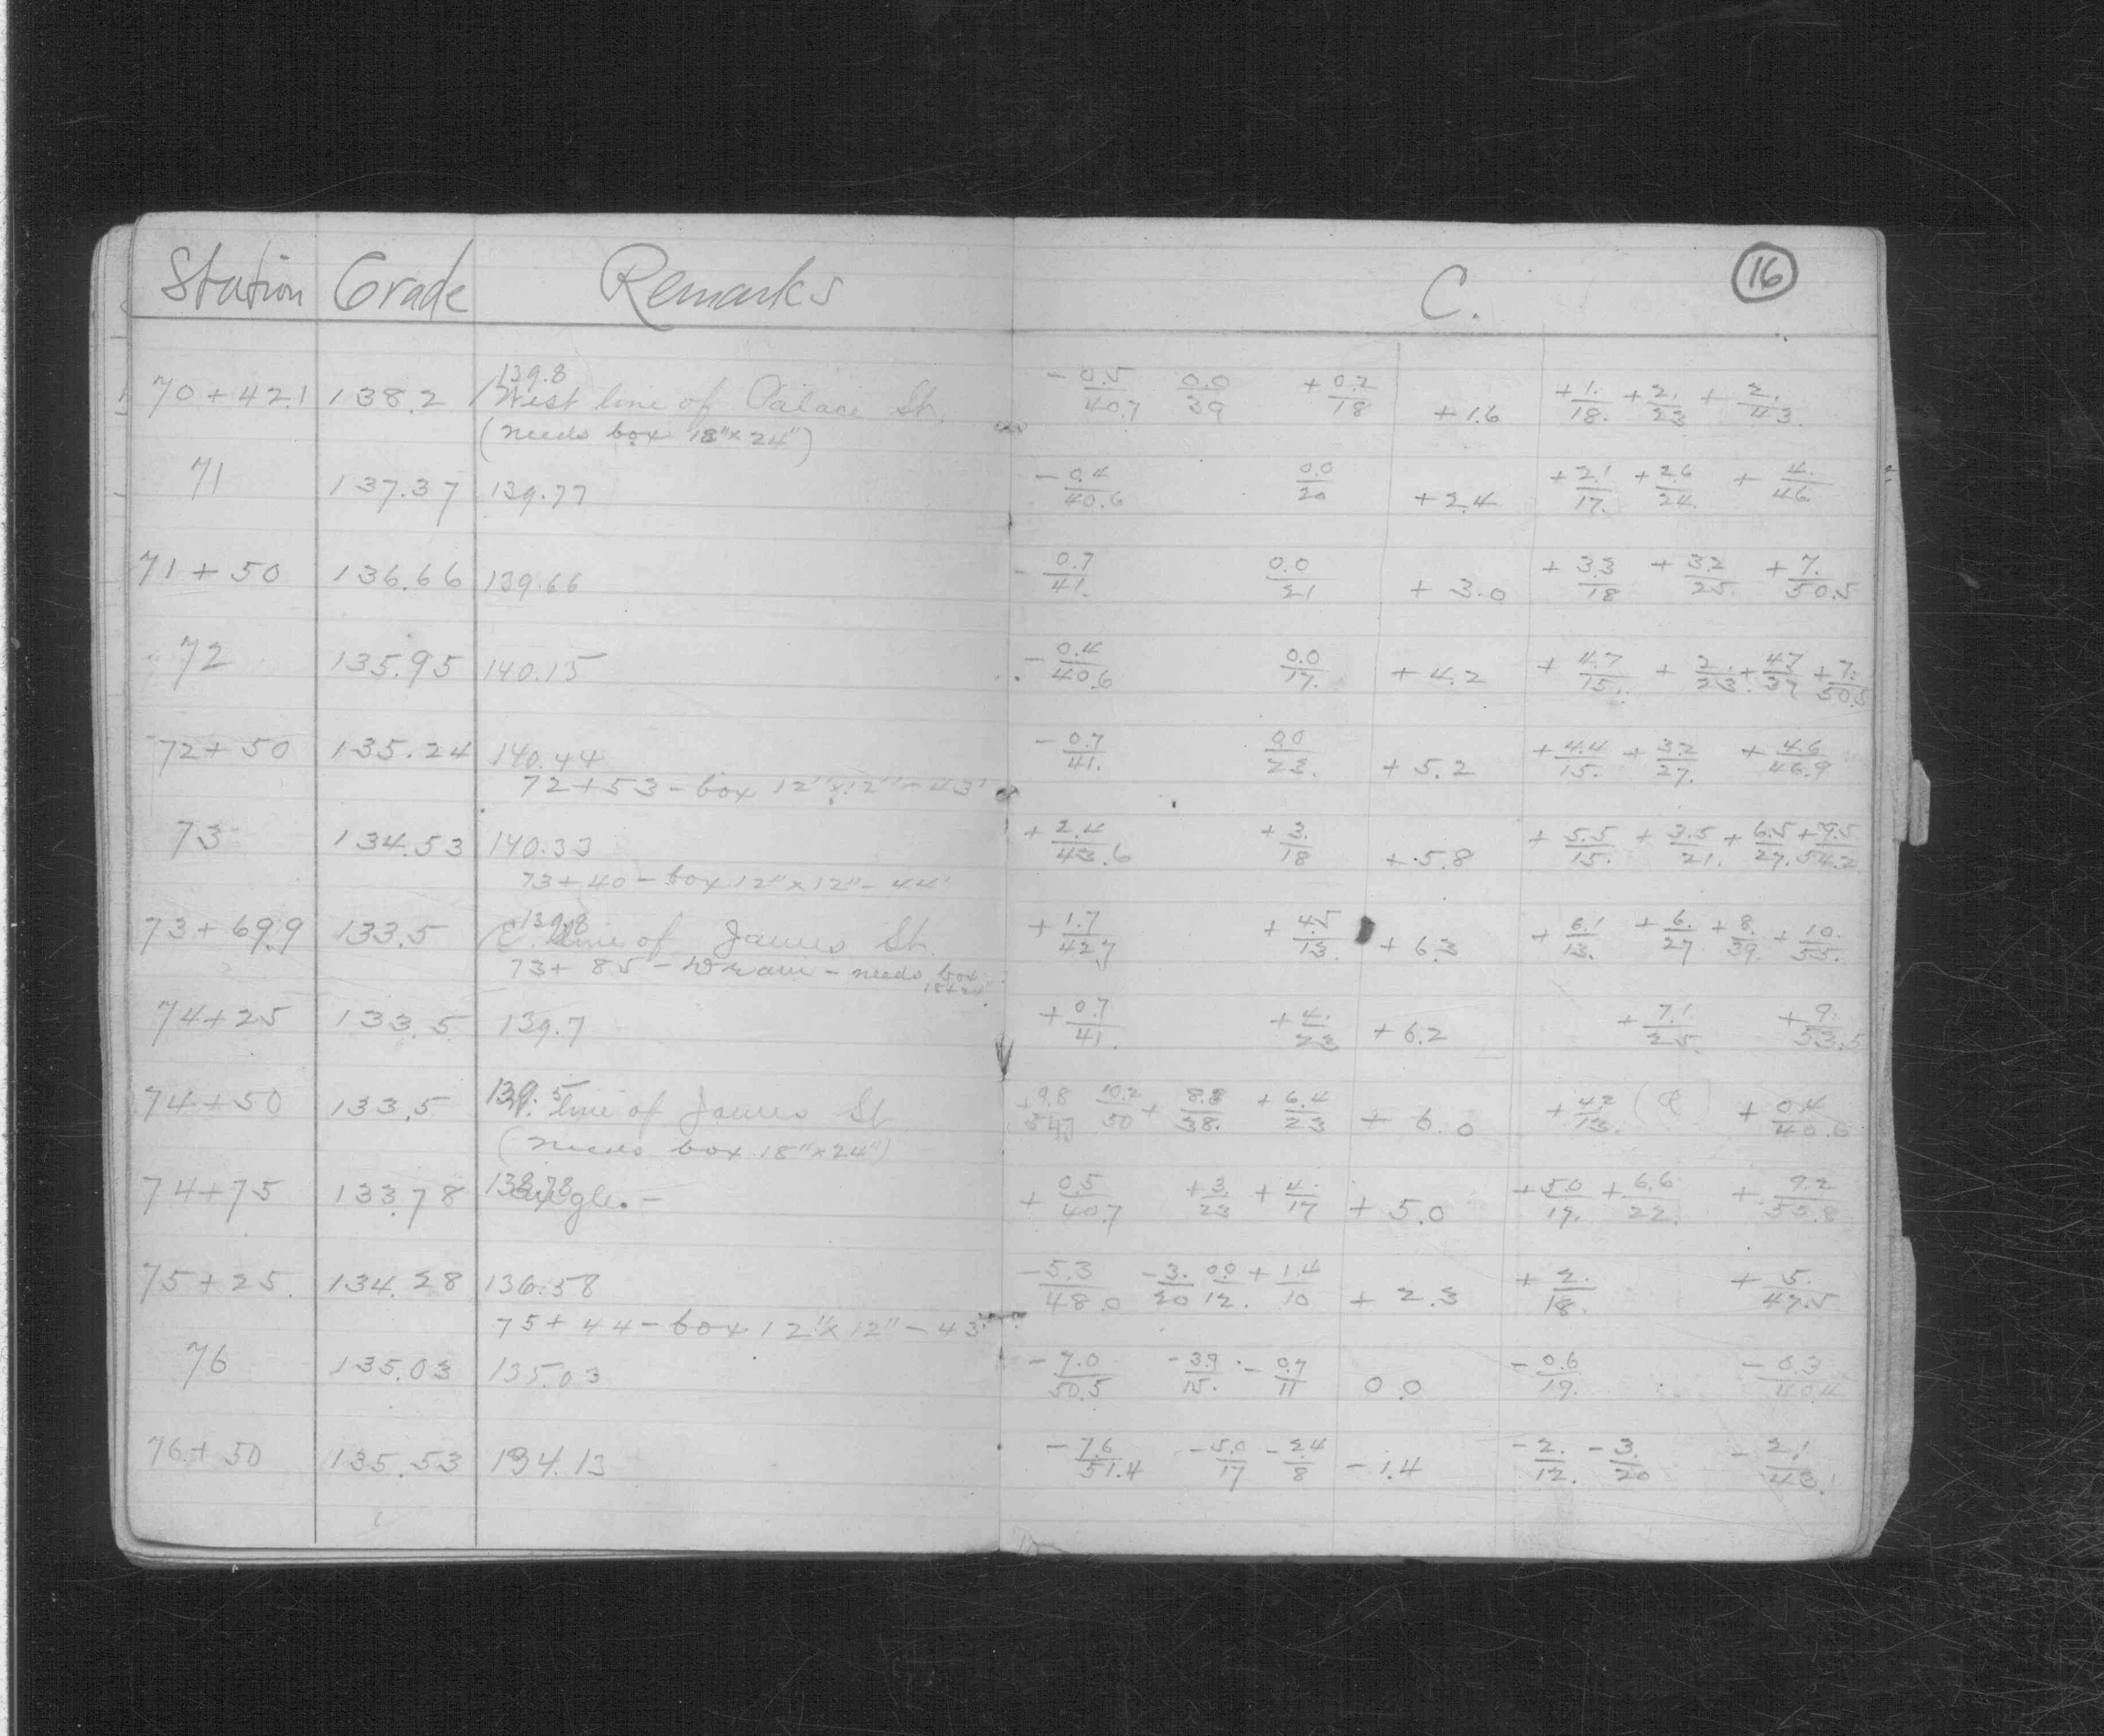 Station Grade Remarks C. 16
139.8
70+42.1 138.2 West line of Palace St. -0.5/40.7 0.0/39 +0.2/18 +1.6 +1./18. +2./23 +2./43.
(needs box 18"x24")
71 137.37 139.77 -0.4/40.6 0.0/20 +2.4 +2.1/17. +2.6/24. +4./46.
71+50 136.66 139.66 -0.7/41. 0.0/21 +3.0 +3.3/18 +3.2/25. +7./50.5
72 135.95 140.15 -0.4/40.6 0.0/17. +4.2 +4.7/15. +2./23. +4.7/37 +7./50.5
72+50 135.24 140.44 -0.7/41. 0.0/23. +5.2 +4.4/15. +3.2/27. +4.6/46.9
72+53-box 12"x12"-43'
73 134.53 140.33 +2.4/43.6 +3./18 +5.8 +5.5/15. +3.5/21. +6.5/27. +9.5/54.2
73+40-box 12"x12"-44'
139.8
73+69.9 133.5 E. line of James St. +1.7/42.7 +4.5/13. +6.3 +6.1/13. +6./27 +8./39. +10./55.
73+85-Drain-needs box
18x24"
74+25 133.5 139.7 +0.7/41. +4./23 +6.2 +7.1/25. +9./53.5
139.5
74+50 133.5 line of James St +9.8/54.7 10.2/50 +8.8/38. +6.4/23 +6.0 +4.2/13. +0.4/40.6
(needs box 18"x24")
138.78
74+75 133.78 angle.- +0.5/40.7 +3./23 +4./17 +5.0 +5.0/17. +6.6/22. +9.2/55.8
75+25. 134.28 136.58 -5.3/48.0 -3./20 0.0/12. +1.4/10 +2.3 +2./18. +5./47.5
75+44-box 12"x12"-43'
76 135.03 135.03 -7.0/50.5 -3.9/15. -0.7/11 0.0 -0.6/19. -0.3/40.4
76+50 135.53 134.13 -7.6/51.4 -5.0/17 -2.4/8 -1.4 -2./12. -3./20 -2.1/43.